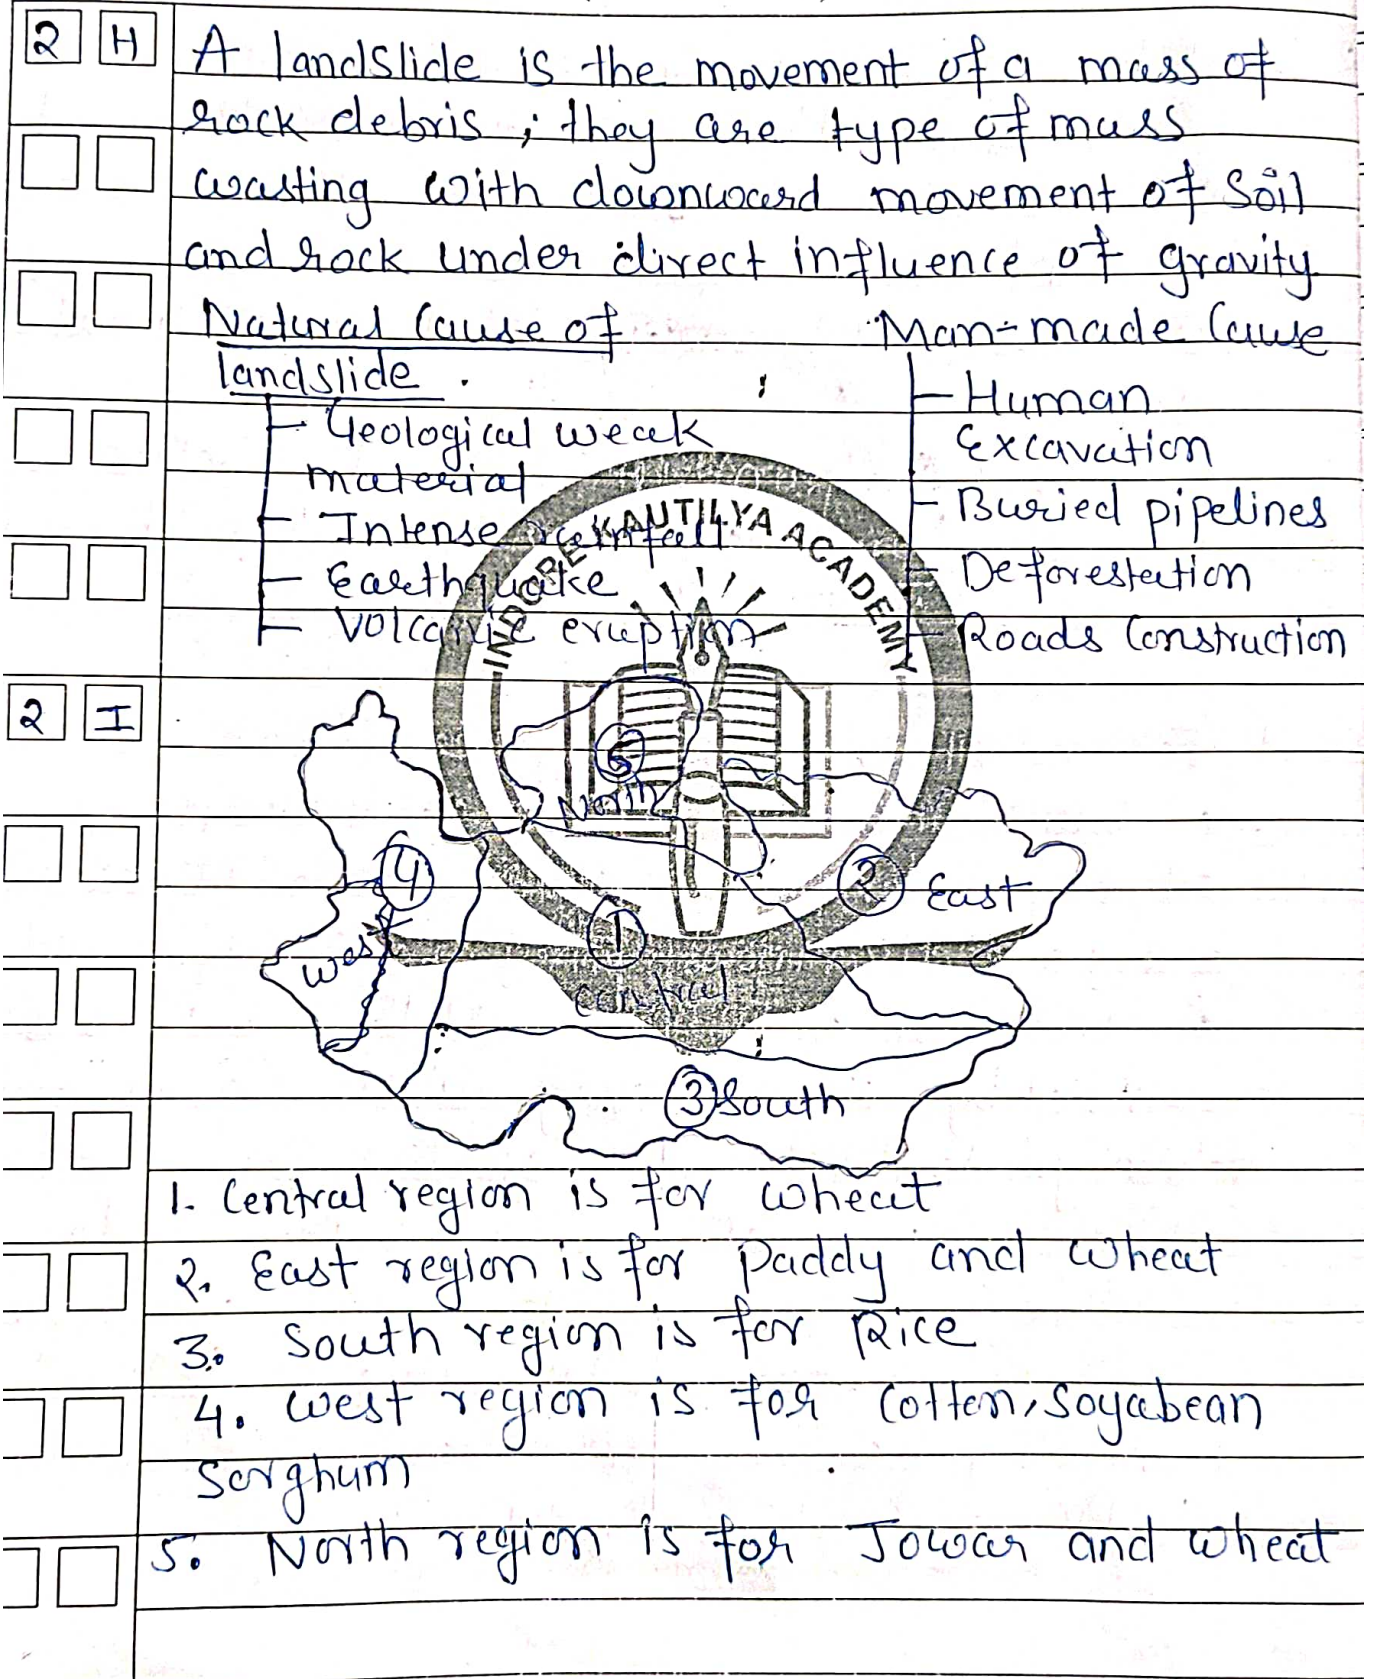 2 H
A landslide is the movement of a mass of
rock debris ; they are type of mass
wasting with downward movement of Soil
and rock under direct influence of gravity
Natural Cause of
landslide
Geological weak
material
Intense rainfall
Earthquake
Volcanic eruption
Man-made Cause
Human
Excavation
Buried pipelines
Deforestation
Roads Construction
INDORE KAUTILYA ACADEMY
2 I
5
North
4
West
1
central
2 East
3 South
1. Central region is for wheat
2. East region is for Paddy and wheat
3. South region is for Rice
4. West region is for Cotten, Soyabean
Sorghum
5. North region is for Jowar and wheat